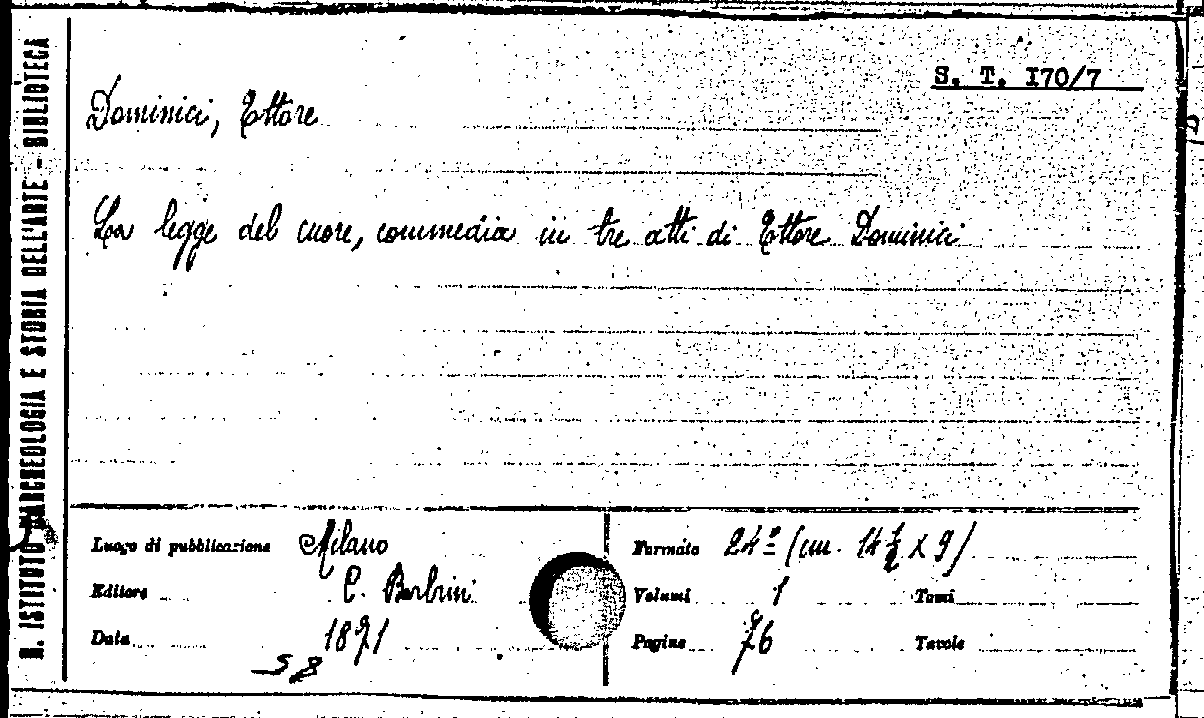 R. ISTITUTO D'ARCHEOLOGIA E STORIA DELL'ARTE - BIBLIOTECA
S. T. I70/7
Dominici, Ettore
La legge del cuore, commedia in tre atti di Ettore Dominici
Luogo di pubblicazione Milano
Editore C. Barbini
Data 1871
58
Formato 24º (cm. 14 ½ x 9)
Volumi 1 Tomi
Pagine 76 Tavole